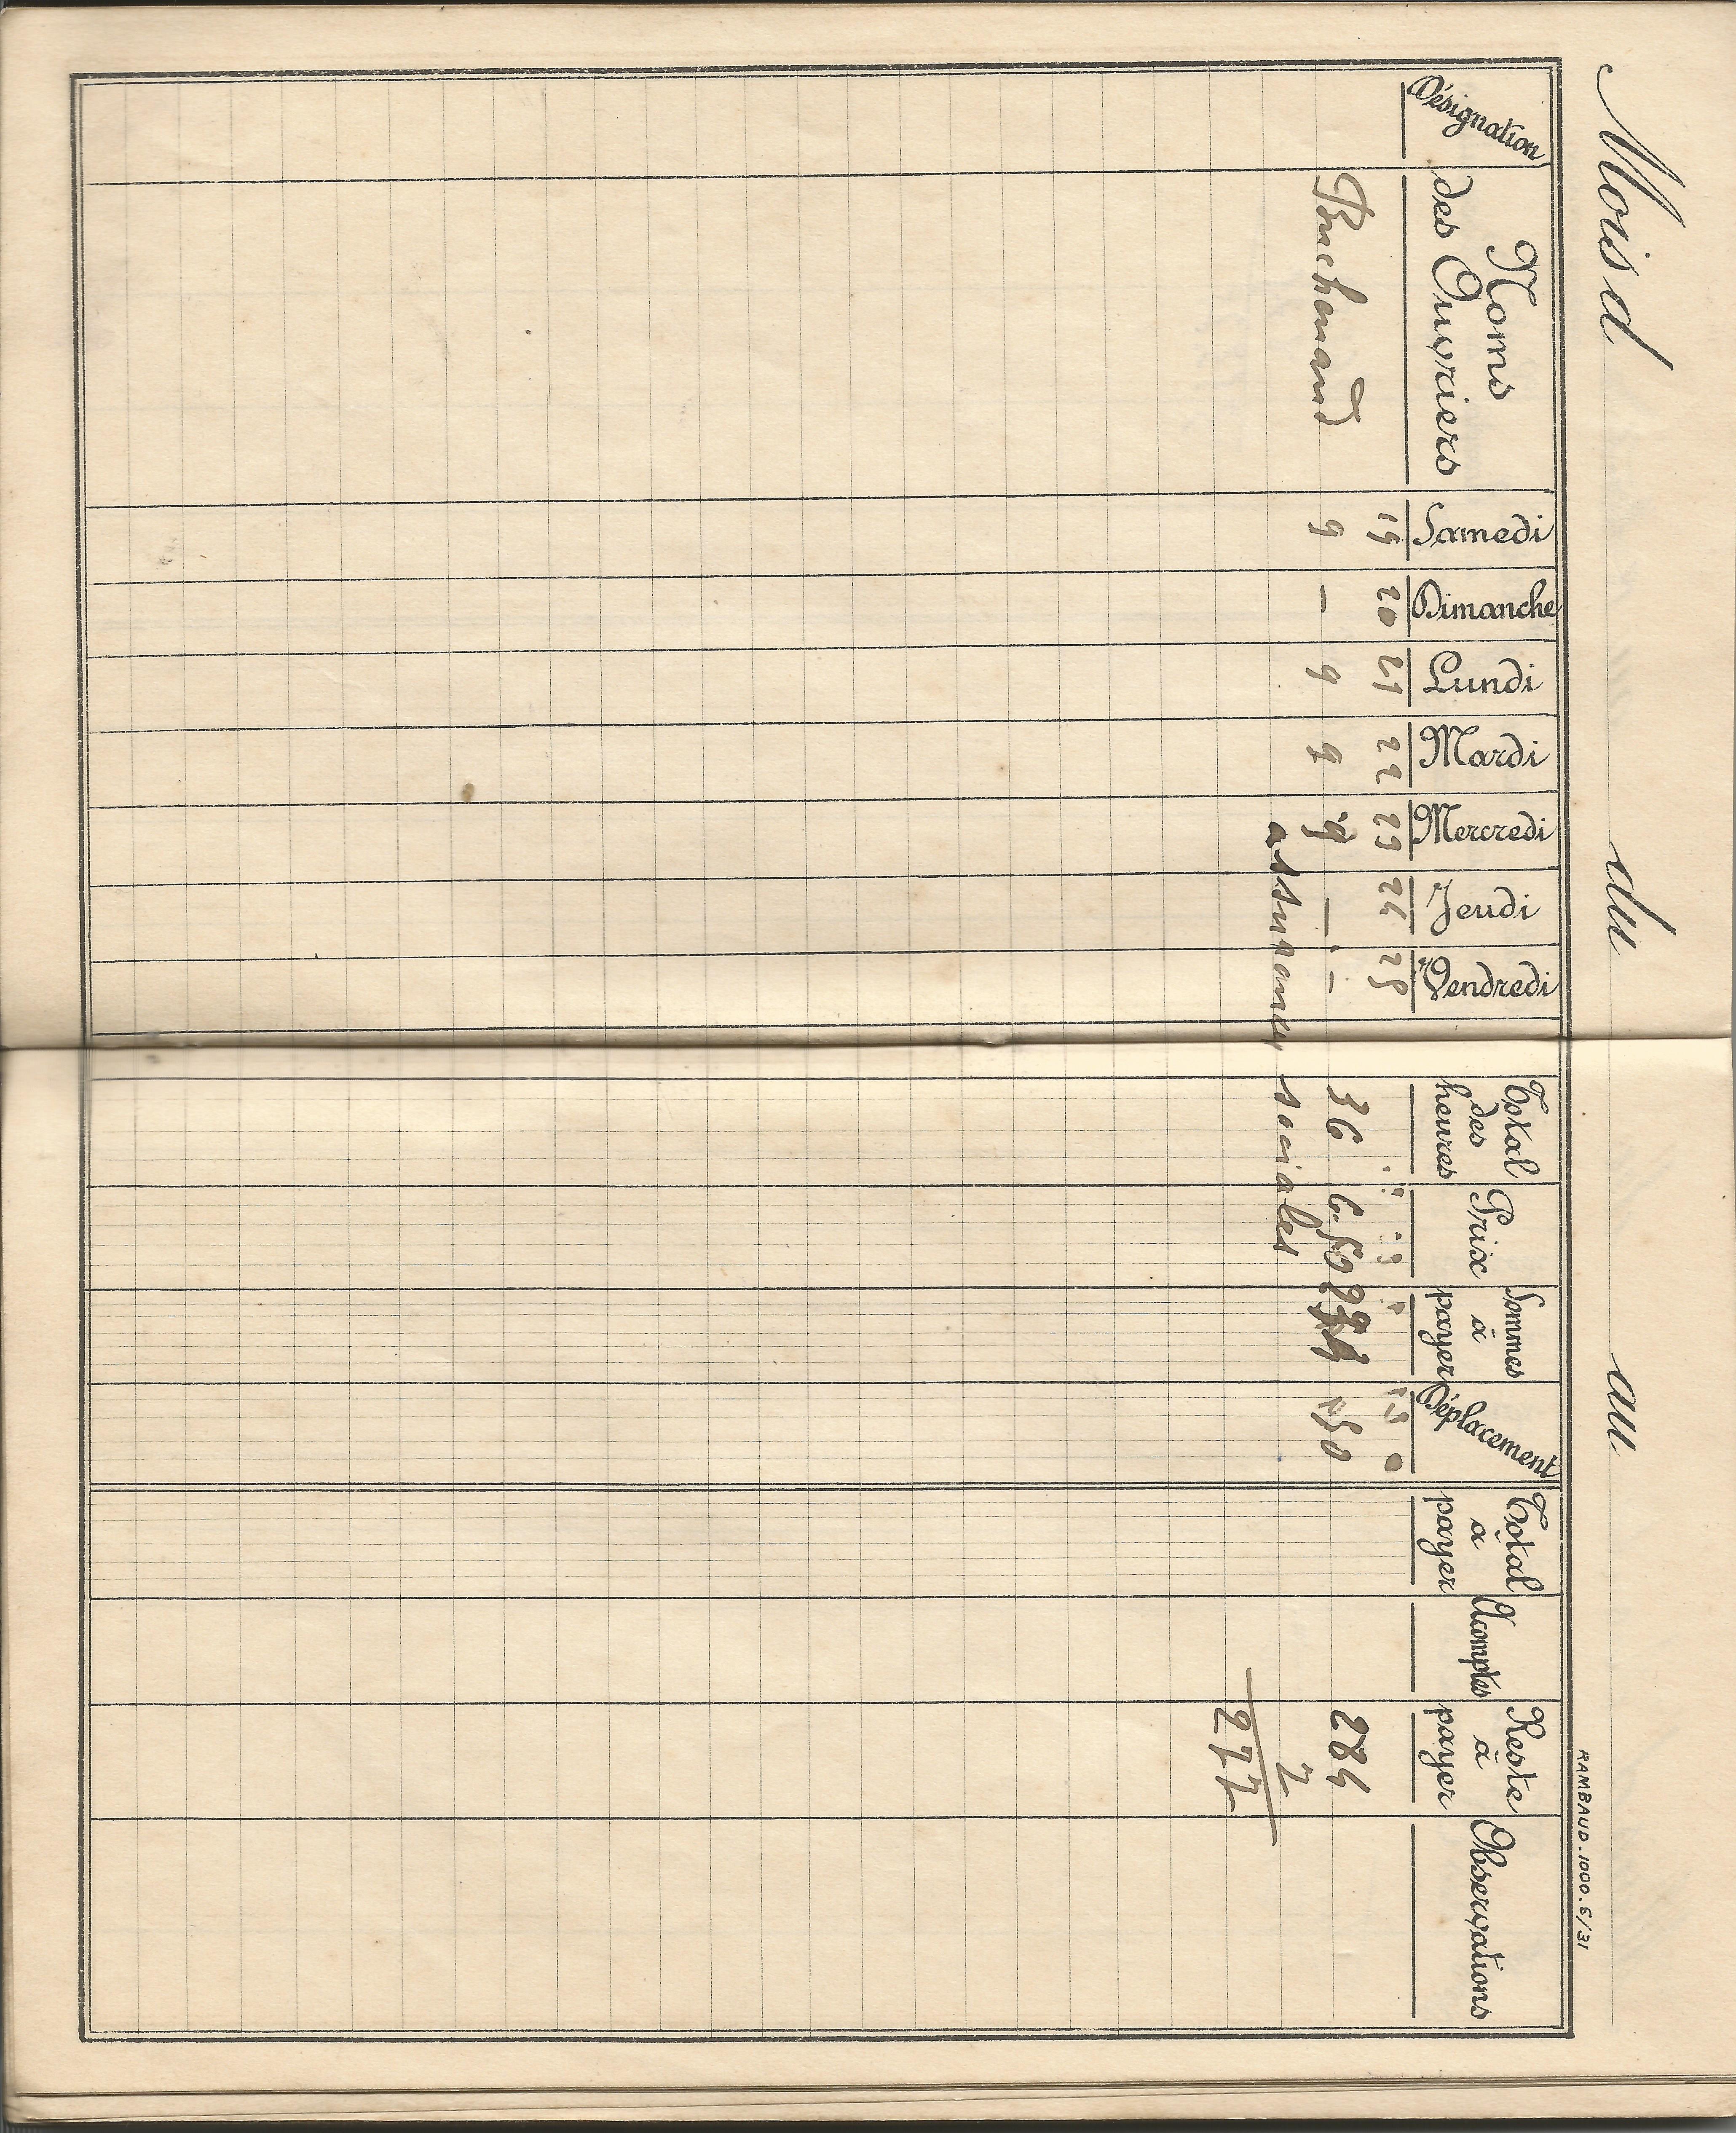 Mois d du au
RAMBAUD.1000.6/31
Désignation Noms des Ouvriers Samedi Dimanche Lundi Mardi Mercredi Jeudi Vendredi Total des heures Prix Sommes à payer Déplacement Total à payer Acomptes Reste à payer Observations
19 20 21 22 23 24 25
9 — 9 9 9 — — 36 6.50 234 50 284
assurances sociales 7
277